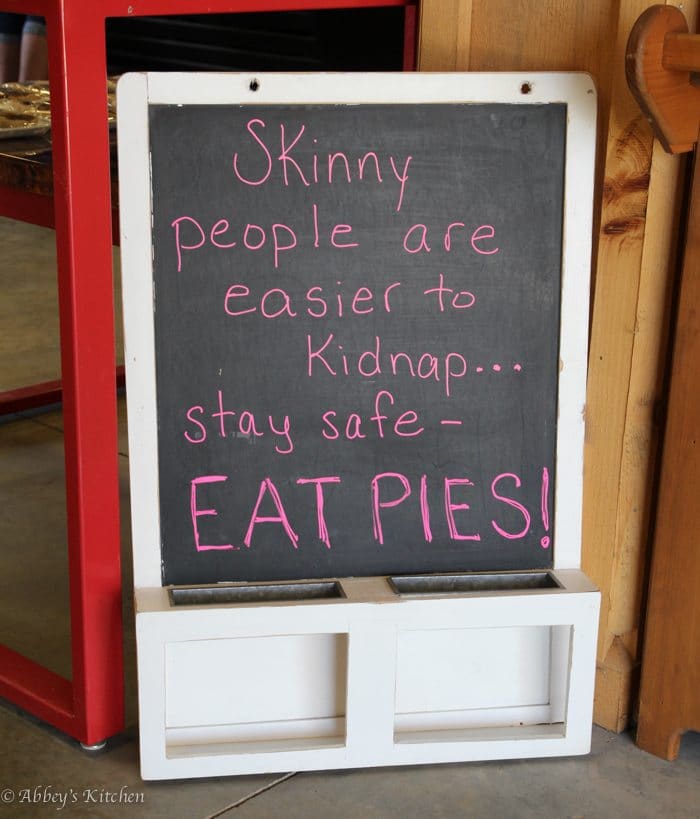 Skinny
people are
easier to
Kidnap...
stay safe -
EAT PIES!
© Abbey's Kitchen